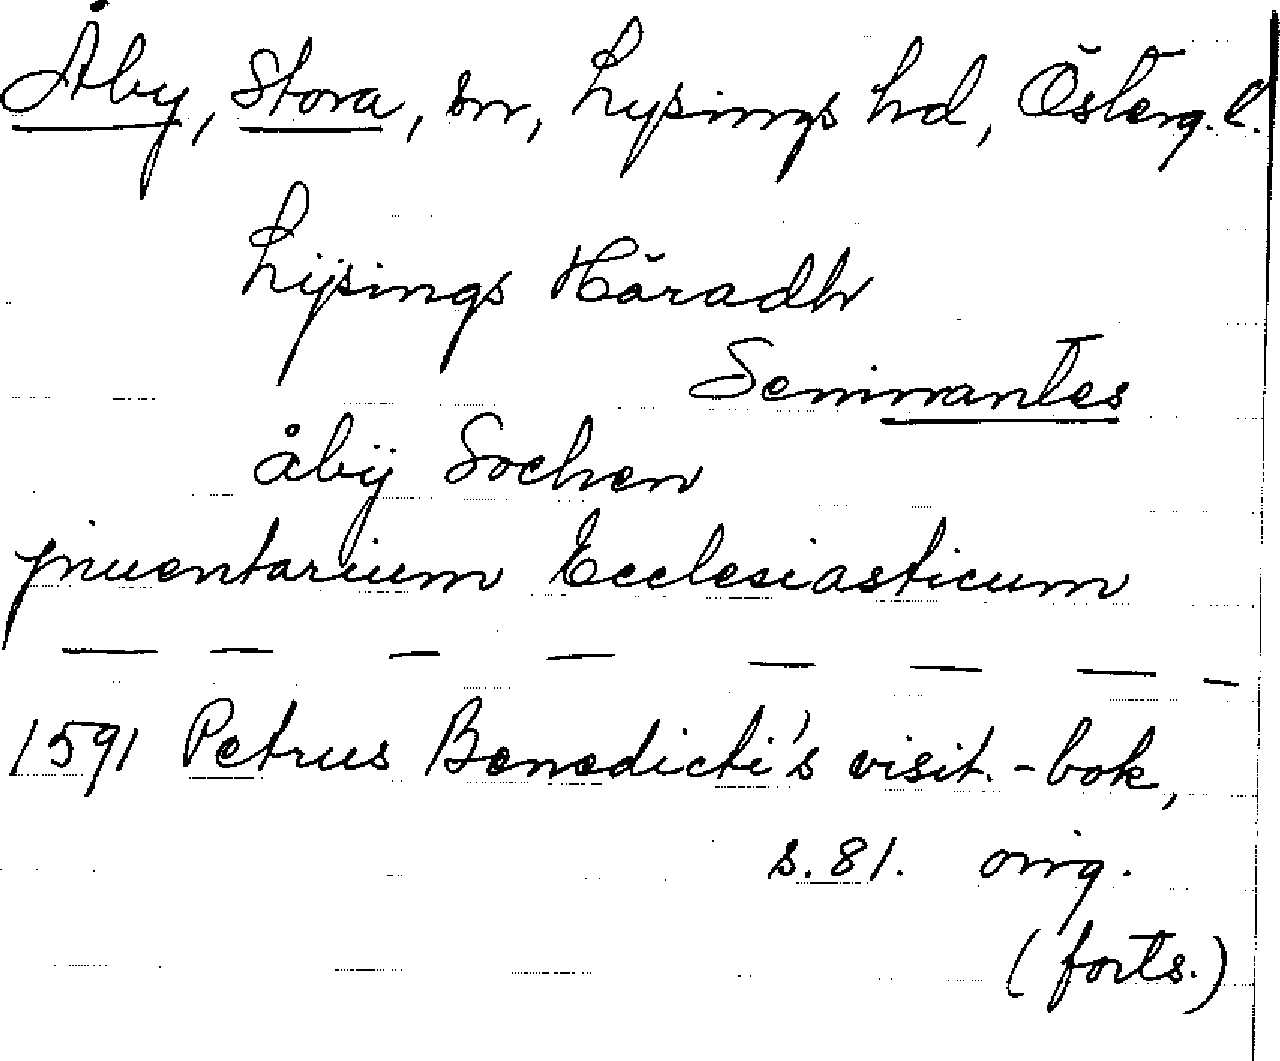 Åby, Stora, sn, Lysings hd, Österg. l.
Lÿsings Häradh
Seminantes
åbÿ Sochen
jnuentarium Ecclesiasticum
— — — — — — — —
1591 Petrus Benedicti's visit.-bok,
s. 81. orig.
(forts.)